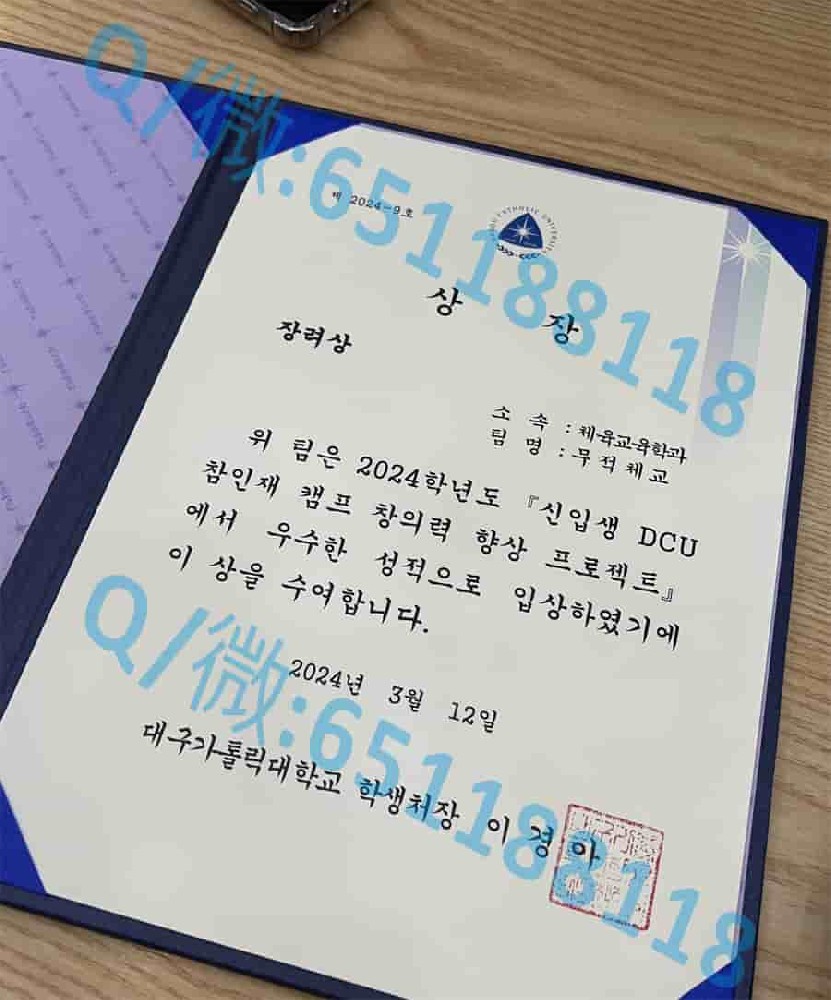 Q/微:651188118
제 2024-9호
상 장
장려상
소 속 : 체육교육학과
팀 명 : 무적체교
위 팀은 2024학년도 『신입생 DCU
참인재 캠프 창의력 향상 프로젝트』
에서 우수한 성적으로 입상하였기에
이 상을 수여합니다.
2024년 3월 12일
Q/微:651188118
대구가톨릭대학교 학생처장 이경아